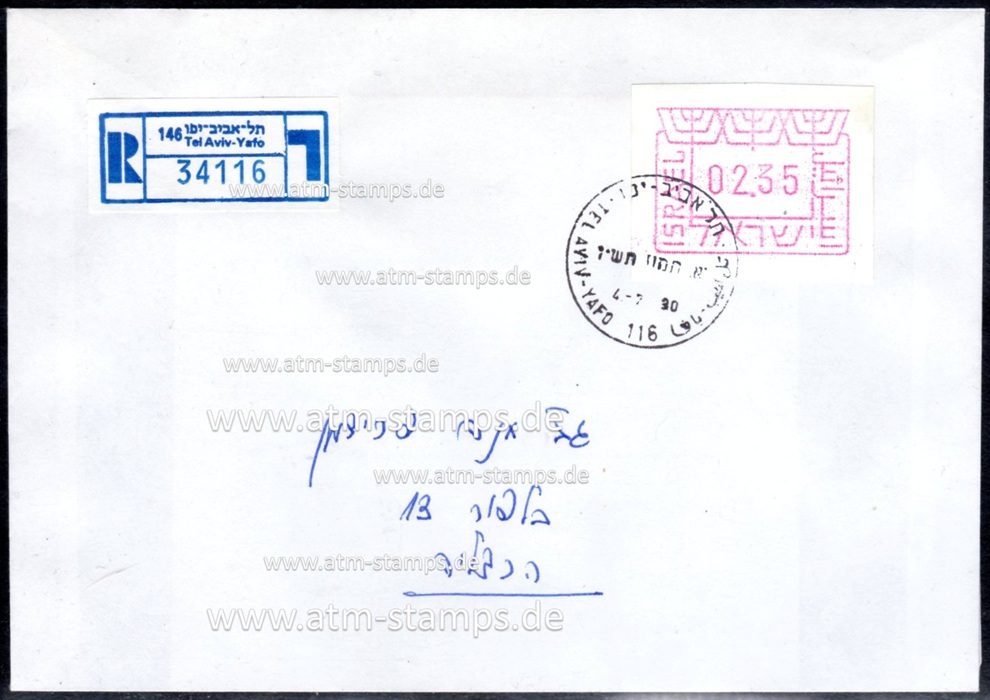 R
146 תל-אביב-יפו
Tel Aviv-Yafo
34116
ר
02.35
ISRAEL
ישראל
תל אביב-יפו · TEL AVIV-YAFO 116
תמוז תש"ן
4-7 90
www.atm-stamps.de
www.atm-stamps.de
www.atm-stamps.de
www.atm-stamps.de
גב'
www.atm-stamps.de
בלפור 13
www.atm-stamps.de
הרצליה
www.atm-stamps.de